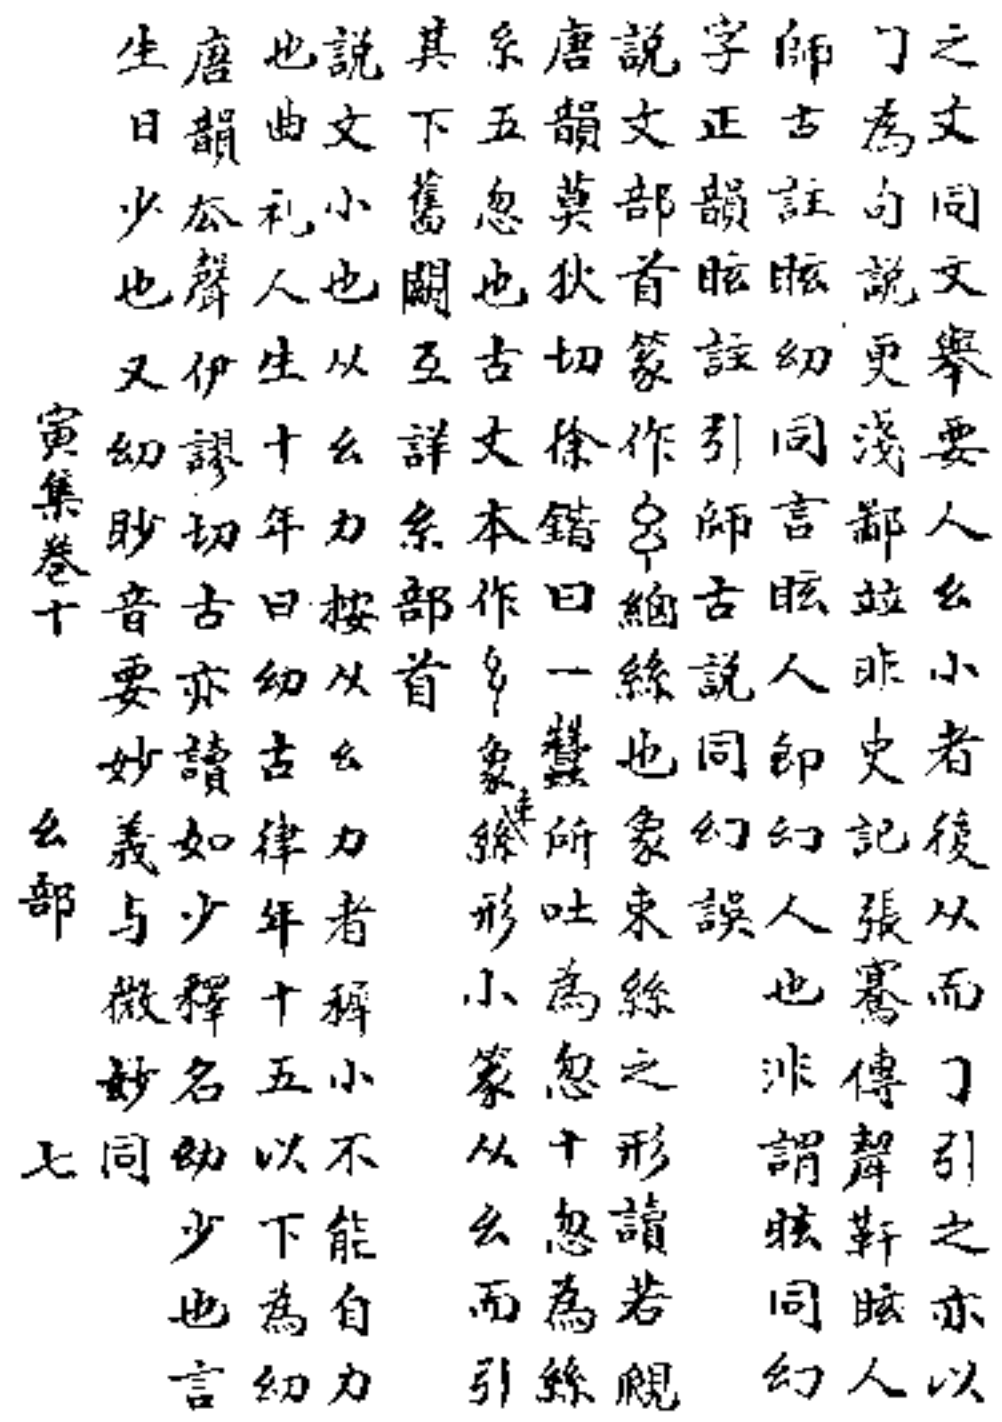 之文同文舉要人幺小者後从而㇆引之亦以
㇆為句說更淺鄙並非史記張騫傳犛靬眩人
師古註眩幼同言眩人即幻人也非謂眩同幻
字正韻眩註引師古說同幻誤
說文部首篆作糸緬絲也象束絲之形讀若覛
唐韻莫狄切徐鍇曰一蠶所吐為忽十忽為絲
糸五忽也古文本作幺象絲束形小篆从幺而引
其下舊闕互詳糸部首
說文小也从幺力按从幺力者稱小不能自力
也曲礼人生十年曰幼古律年十五以下為幼
唐韻𠫤聲伊謬切古亦讀如少釋名幼少也言
生日少也又幼眇音要妙義与微妙同
寅集卷十 幺部 七